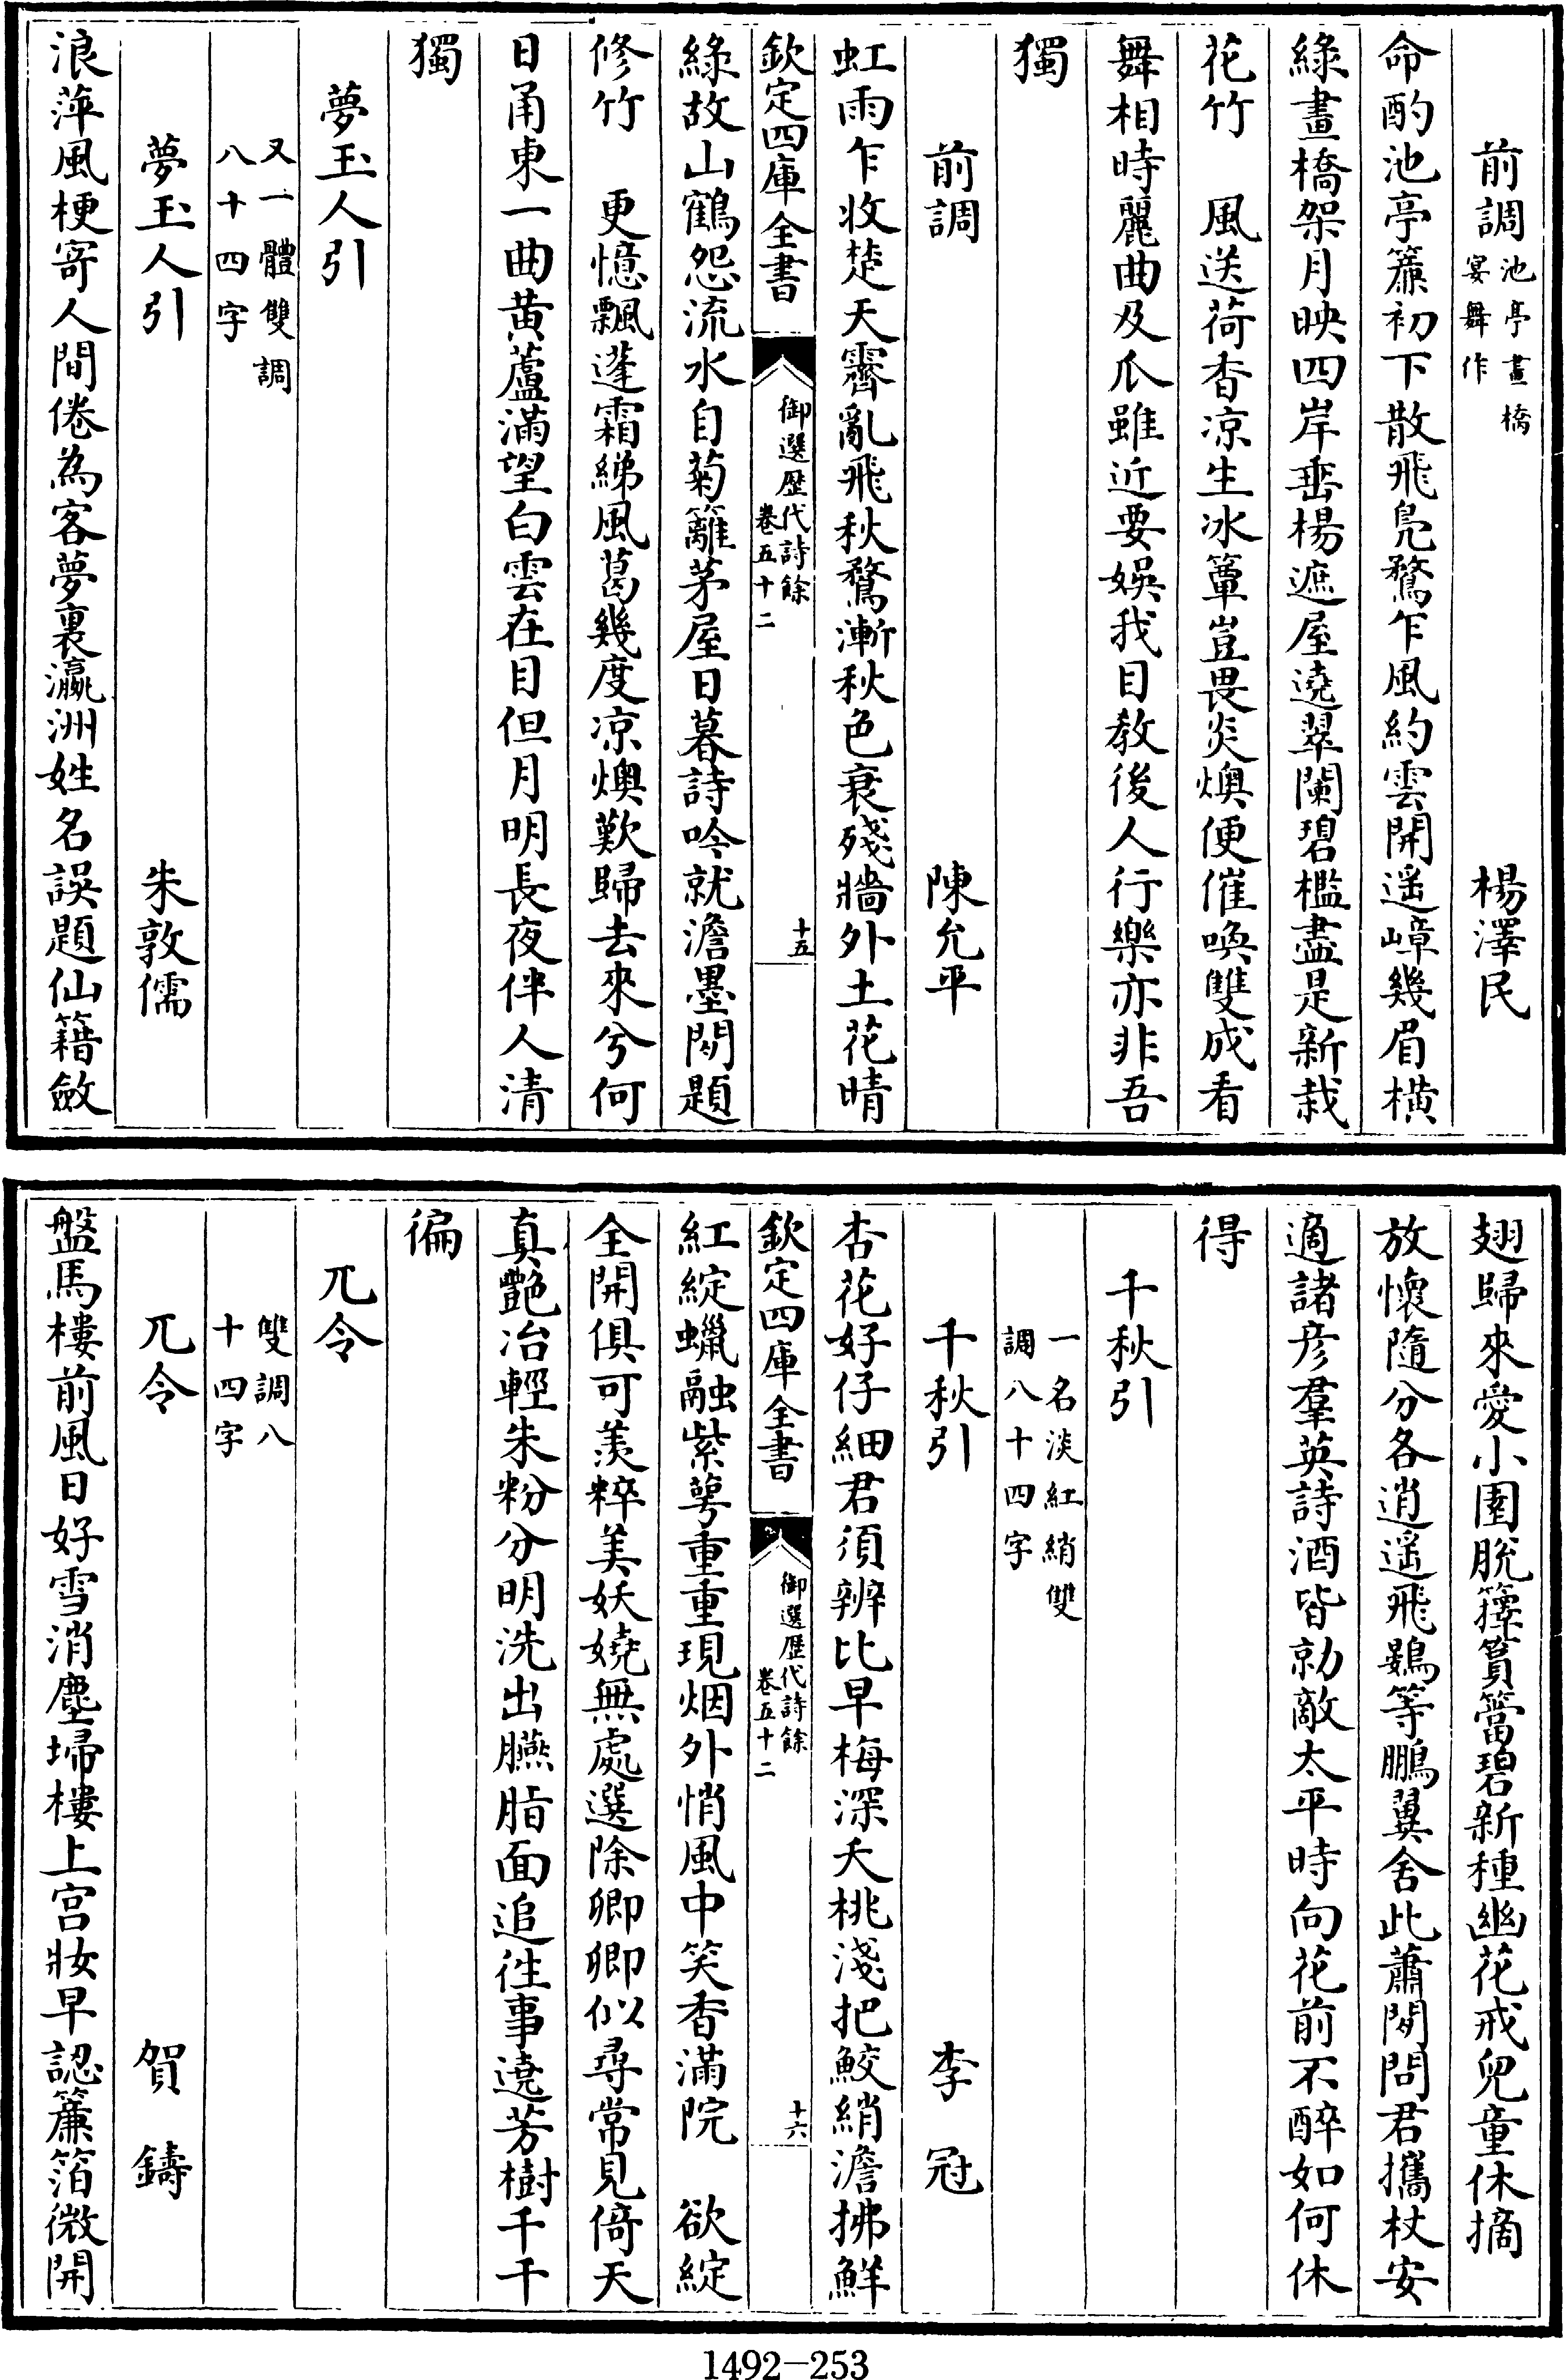 前調池亭畫橋宴舞作　楊澤民
命酌池亭簾初下散飛鳧鶩乍風約雲開遥嶂幾眉横
緑畫橋架月映四岸垂楊遮屋遶翠闌碧檻盡是新栽
花竹　風送荷香凉生冰簟豈畏炎燠便催喚雙成看
舞相時麗曲及瓜雖近要娱我目教後人行樂亦非吾
獨
前調　陳允平
虹雨乍收楚天霽亂飛秋鶩漸秋色衰殘牆外土花晴
欽定四庫全書　御選歷代詩餘　卷五十二　十五
緑故山鶴怨流水自菊籬茅屋日暮詩吟就澹墨閒題
修竹　更憶飄蓬霜綈風葛幾度凉燠歎歸去來兮何
日甬東一曲黄蘆滿望白雲在目但月明長夜伴人清
獨
夢玉人引
又一體雙調八十四字
夢玉人引　朱敦儒
浪萍風梗寄人間倦為客夢裏瀛洲姓名誤題仙籍斂
翅歸來愛小園脱籜篔簹碧新種幽花戒兒童休摘
放懷隨分各逍遥飛鷃等鵬翼舍此蕭閒問君攜杖安
適諸彦羣英詩酒皆勍敵太平時向花前不醉如何休
得
千秋引
一名淡紅綃雙調八十四字
千秋引　李冠
杏花好仔細君須辨比早梅深夭桃淺把鮫綃澹拂鮮
欽定四庫全書　御選歷代詩餘　卷五十二　十六
紅綻蠟融紫萼重重現烟外悄風中笑香滿院　欲綻
全開俱可羡粹美妖嬈無處選除卿卿似尋常見倚天
真艷冶輕朱粉分明洗出臙脂面追徃事遶芳樹千千
徧
兀令
雙調八十四字
兀令　賀鑄
盤馬樓前風日好雪消塵掃樓上宫妝早認簾箔微開
1492—253